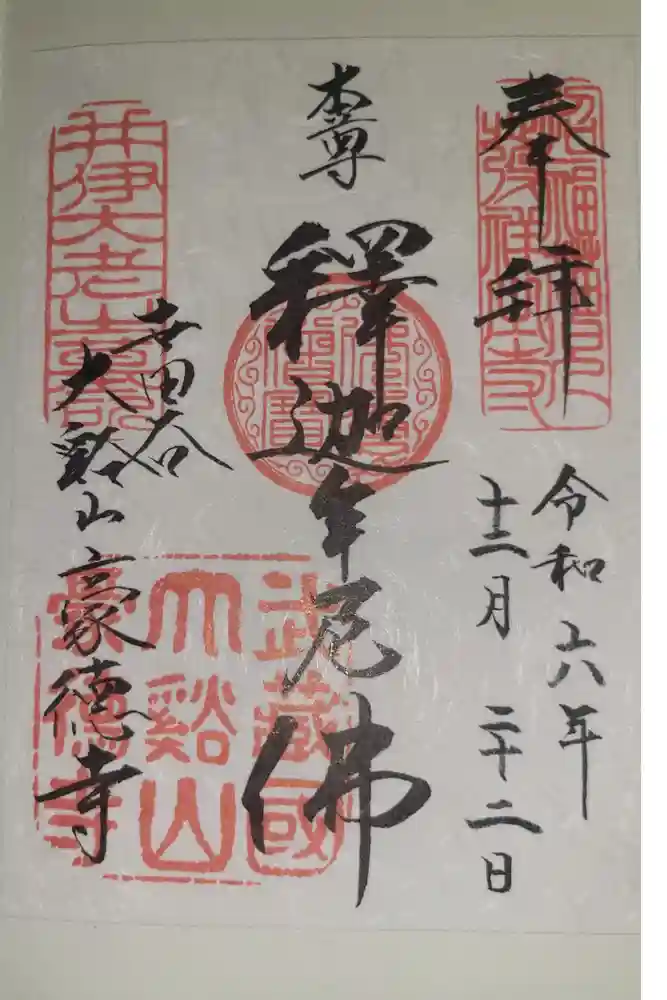 奉拝
令和六年
十二月二十二日
本尊
釋迦牟尼佛
世田谷
大谿山豪徳寺
招福
發祥
武蔵國
大谿山
豪徳寺
井伊大老